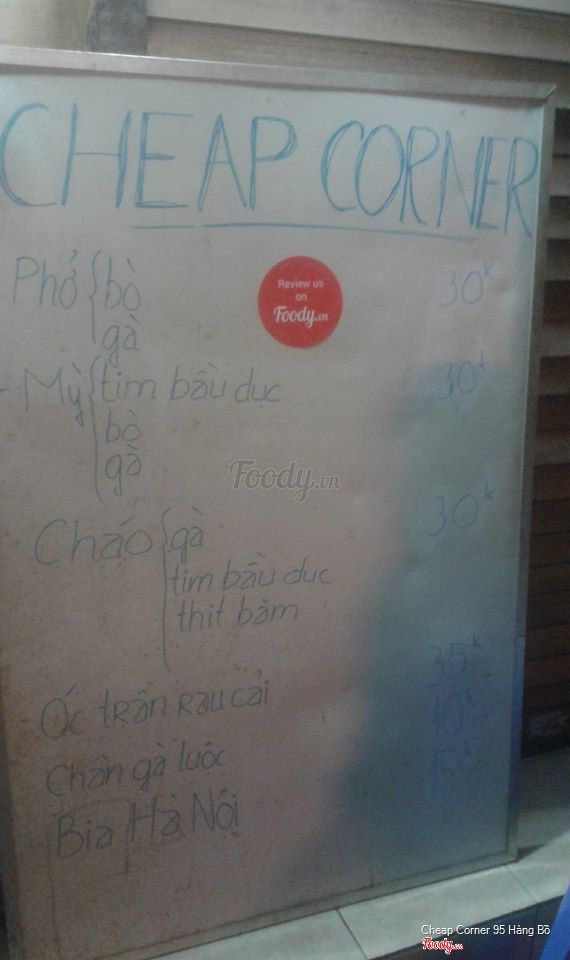 CHEAP CORNER
Phở { bò 30k
gà
- Mỳ { tim bầu dục 30k
bò
gà
Cháo { gà 30k
tim bầu dục
thịt băm
Óc trần rau cải 35k
Chân gà luộc 10k
Bia Hà Nội 15k
Review us
on
Foody.vn
Foody.vn
Cheap Corner 95 Hàng Bồ
Foody.vn